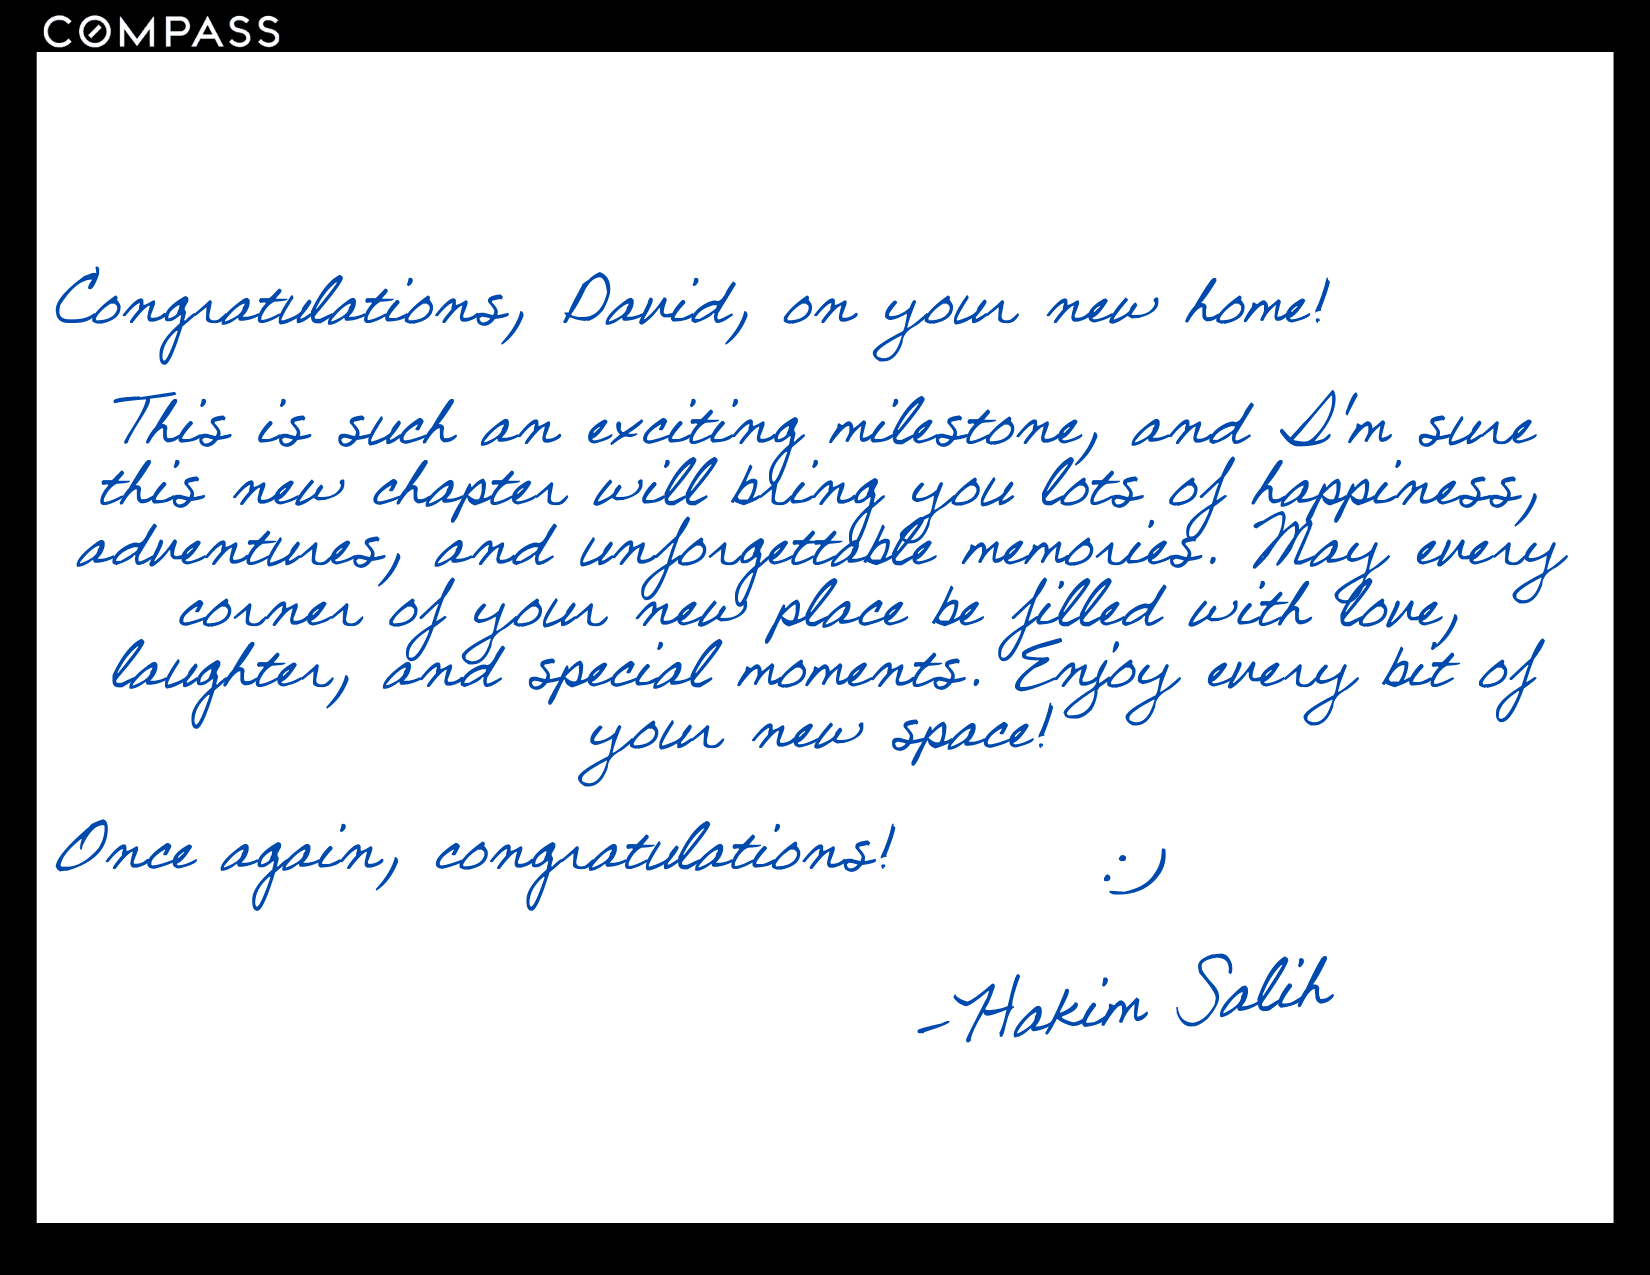 COMPASS
Congratulations, David, on your new home!
This is such an exciting milestone, and I'm sure
this new chapter will bring you lots of happiness,
adventures, and unforgettable memories. May every
corner of your new place be filled with love,
laughter, and special moments. Enjoy every bit of
your new space!
Once again, congratulations! :-)
-Hakim Salih